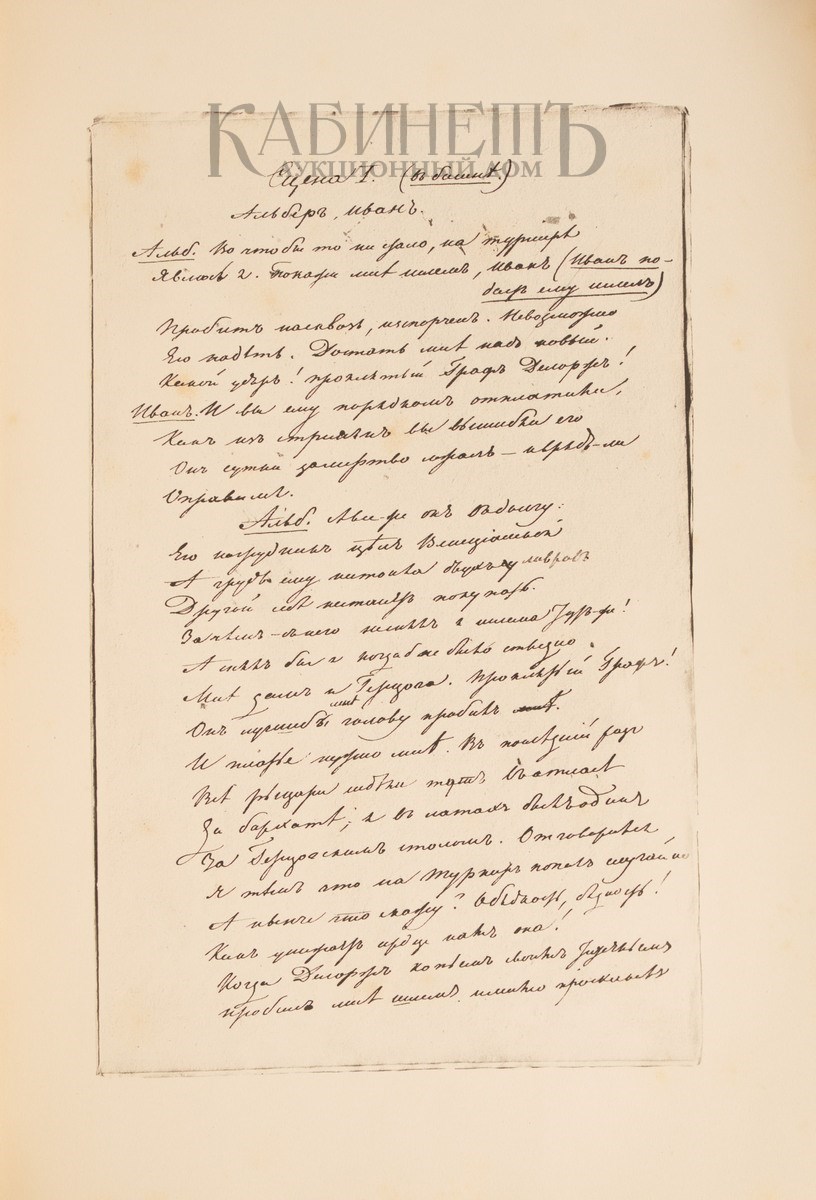 КАБИНЕТЪ
АУКЦИОННЫЙ ДОМ
Сцена I. (въ башнѣ.)
Альберъ, Иванъ.
Альб. Во что бы то ни стало, на турнирѣ
Явлюсь я. Покажи мнѣ шлемъ, Иванъ (Иванъ по-
даетъ ему шлемъ)
Пробитъ насквозь, испорченъ. Невозможно
Его надѣть. Достать мнѣ надо новый.
Какой ударъ! проклятый Графъ Делоржъ!
Иванъ. И вы ему порядкомъ отплатили,
Какъ изъ стремянъ вы вышибли его
Онъ сутки замертво лежалъ — и врядъ-ли
Оправился.
Альб. А все-же онъ
Его нагрудникъ цѣлъ Венеціанской
А грудь
Другой себѣ не станетъ покупать.
Зачѣмъ съ него не снялъ я шлема тутъ-же!
А снялъ бы я когдаб не было стыдно
Мнѣ дамъ и Герцога. Проклятый Графъ!
Онъ лучшебъ мнѣ голову пробилъ
И платье нужно мнѣ. Въ послѣдній разъ
Всѣ рыцари сидѣли тутъ въ атласѣ
Да бархатѣ; я въ латахъ былъ одинъ
За Герцогскимъ столомъ. Отговорился
Я тѣмъ что на турниръ попалъ случайно
А нынче что скажу? О бѣдность, бѣдность!
Какъ унижаетъ сердце намъ она!
Когда Делоржъ копьемъ своимъ тяжелымъ
Пробилъ мнѣ шлемъ и мимо проскакалъ